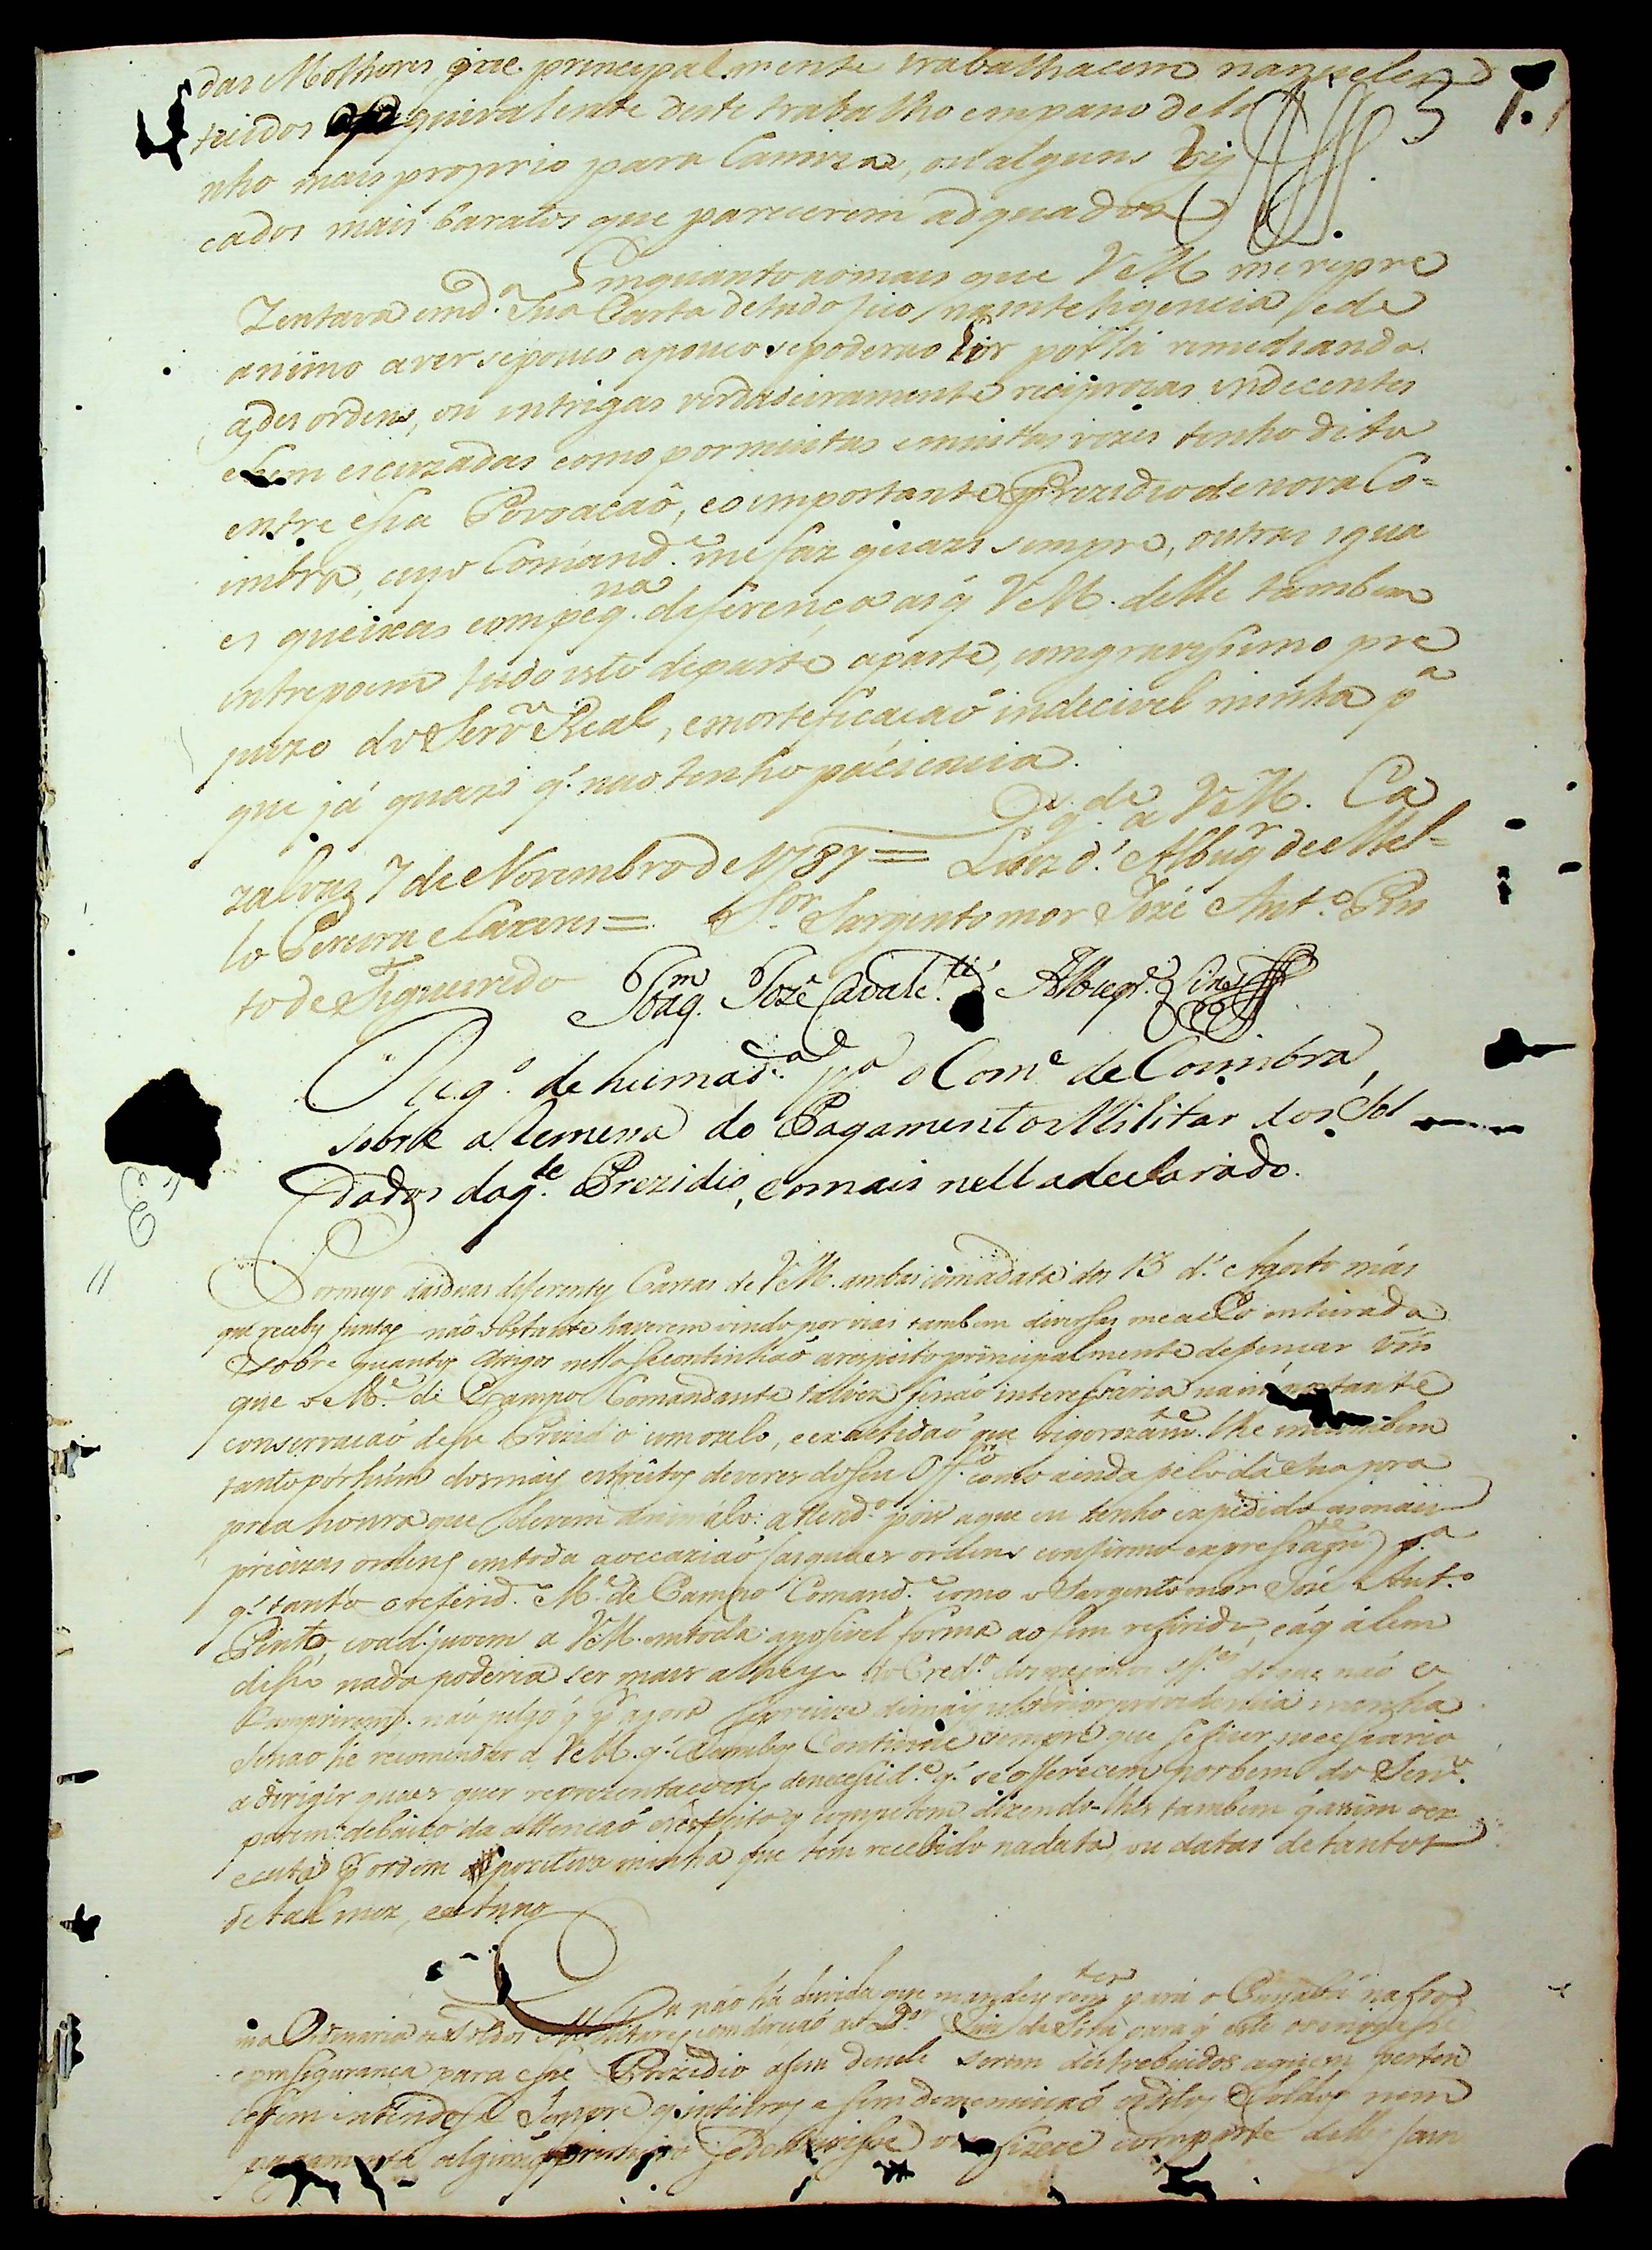 das Molheres que principalmente trabalhacem naqueles
tecidos equivalente deste trabalho em pano de lo
nho mais proprio para Camiza, ou alguns
cados mais baratos que parecerem adquados
Emquanto aomais que VM me repre
zentava emd.ª Sua Carta detudo fico na intelligencia e de
animo aver sepouco apouco sepoderáo hir por lá remediando
as des ordens, ou intrigas verdadeiramente reciprocas indecentes
e bem escuzadas como por muitas e muitas vezes tenho dito
entre essa Povoacaõ, eo importante Prezidio de nova Co=
imbra, cujo Comand.e me faz quazi sempre, outras igua
es queixas com peq.na diferença as q VM. delle tambem
intrepoem tudo isto de parte aparte, com gravissimo pre
juizo do Serv.o Real, emorteficaçaõ indecivel minha p.a
que já quazi q. nao tenho paciencia.
D.s g.de a VM. Ca
zalvaz 7 de Novembro de 1787 = Luiz d' Albuq.r de Mel=
lo Pereira Caceres = S.or Sargento mor Jozé Ant.o Pin
to de Figueiredo Joaq.m Joze Cavalc.ti Albuqr.e Lins
Reg.o de huma d.a p.a o Com.e de Coimbra,
sobre a Remessa do Pagamento Militar dos Sol
dados daq.le Prezidio, eomais nella declarado.
Por meyo das duas diferentes Cartas de VM. ambas com a data dos 13 d' Agosto
que receby juntas não obstante haverem vindo por vias tambem diversas me acho inteirado
sobre quantos Artigos nellas se continhaõ a respeito principalmente de pençar
que o M.e de Campo Comandante talvez senaõ interessaria na importante
conservacaõ desse Prezidio com ozelo, e exactidaõ que rigorozam.te lhe incumbem
tanto por hum dos mais estreitos deveres do seu Off.o como ainda pelo da Sua pro
pria honra que devem animálo: attend.o pois aque eu tenho expedido as mais
precizas ordens em toda a occaziaõ (as quaes ordens confirmo expressam.te) p.a
q. tanto o referid.o M.e de Campo Comand.e como o Sargento mor Jozé Ant.o
Pinto, coadjuvem a VM. em toda a possivel forma ao fim referido, e áq álem
disso nada poderia ser mais alheyo do Cred.o dos mesmos Off.es do que naõ o
cumprirem. naõ julgo q p.r agora seprecize de mais ulterior providencia minha
senao he recomendar a VM. q. a ambos Continue sempre que sefizer necessario
a dirigir quaes quer reprezentacoens denecessid.e q. se offerecem por bem do Serv.o
porem debaixo da attencaõ e respeito q competem dizendo-lhes tambem q assim oex
ecuta p.r ordem pozitiva minha que tem recebido nadata ou datas de tantos
de tal mez, e tanno
naõ há duvida que mandey rem.ter para o Cuyabá na for
ma Ordinaria os Soldos Militares com direcaõ ao D.or para q este os
com seguranca para esse Prezidio afim denele serem destrebuidos aquem perten
cessem intendo Sempre q inteiros e sem demenuicaõ os ditos Soldos nem
pagamento algum primeiro sededuzisse ou fizece comparte delles sem